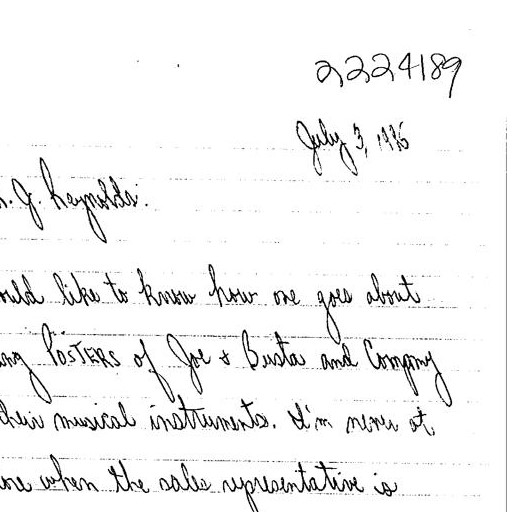 2224189
July 3, 1996
R. J. Reynolds.
ould like to know how one goes about
ing POSTERS of Joe & Busta and Company
heir musical instruments. I'm never at
ore when the sales representative is